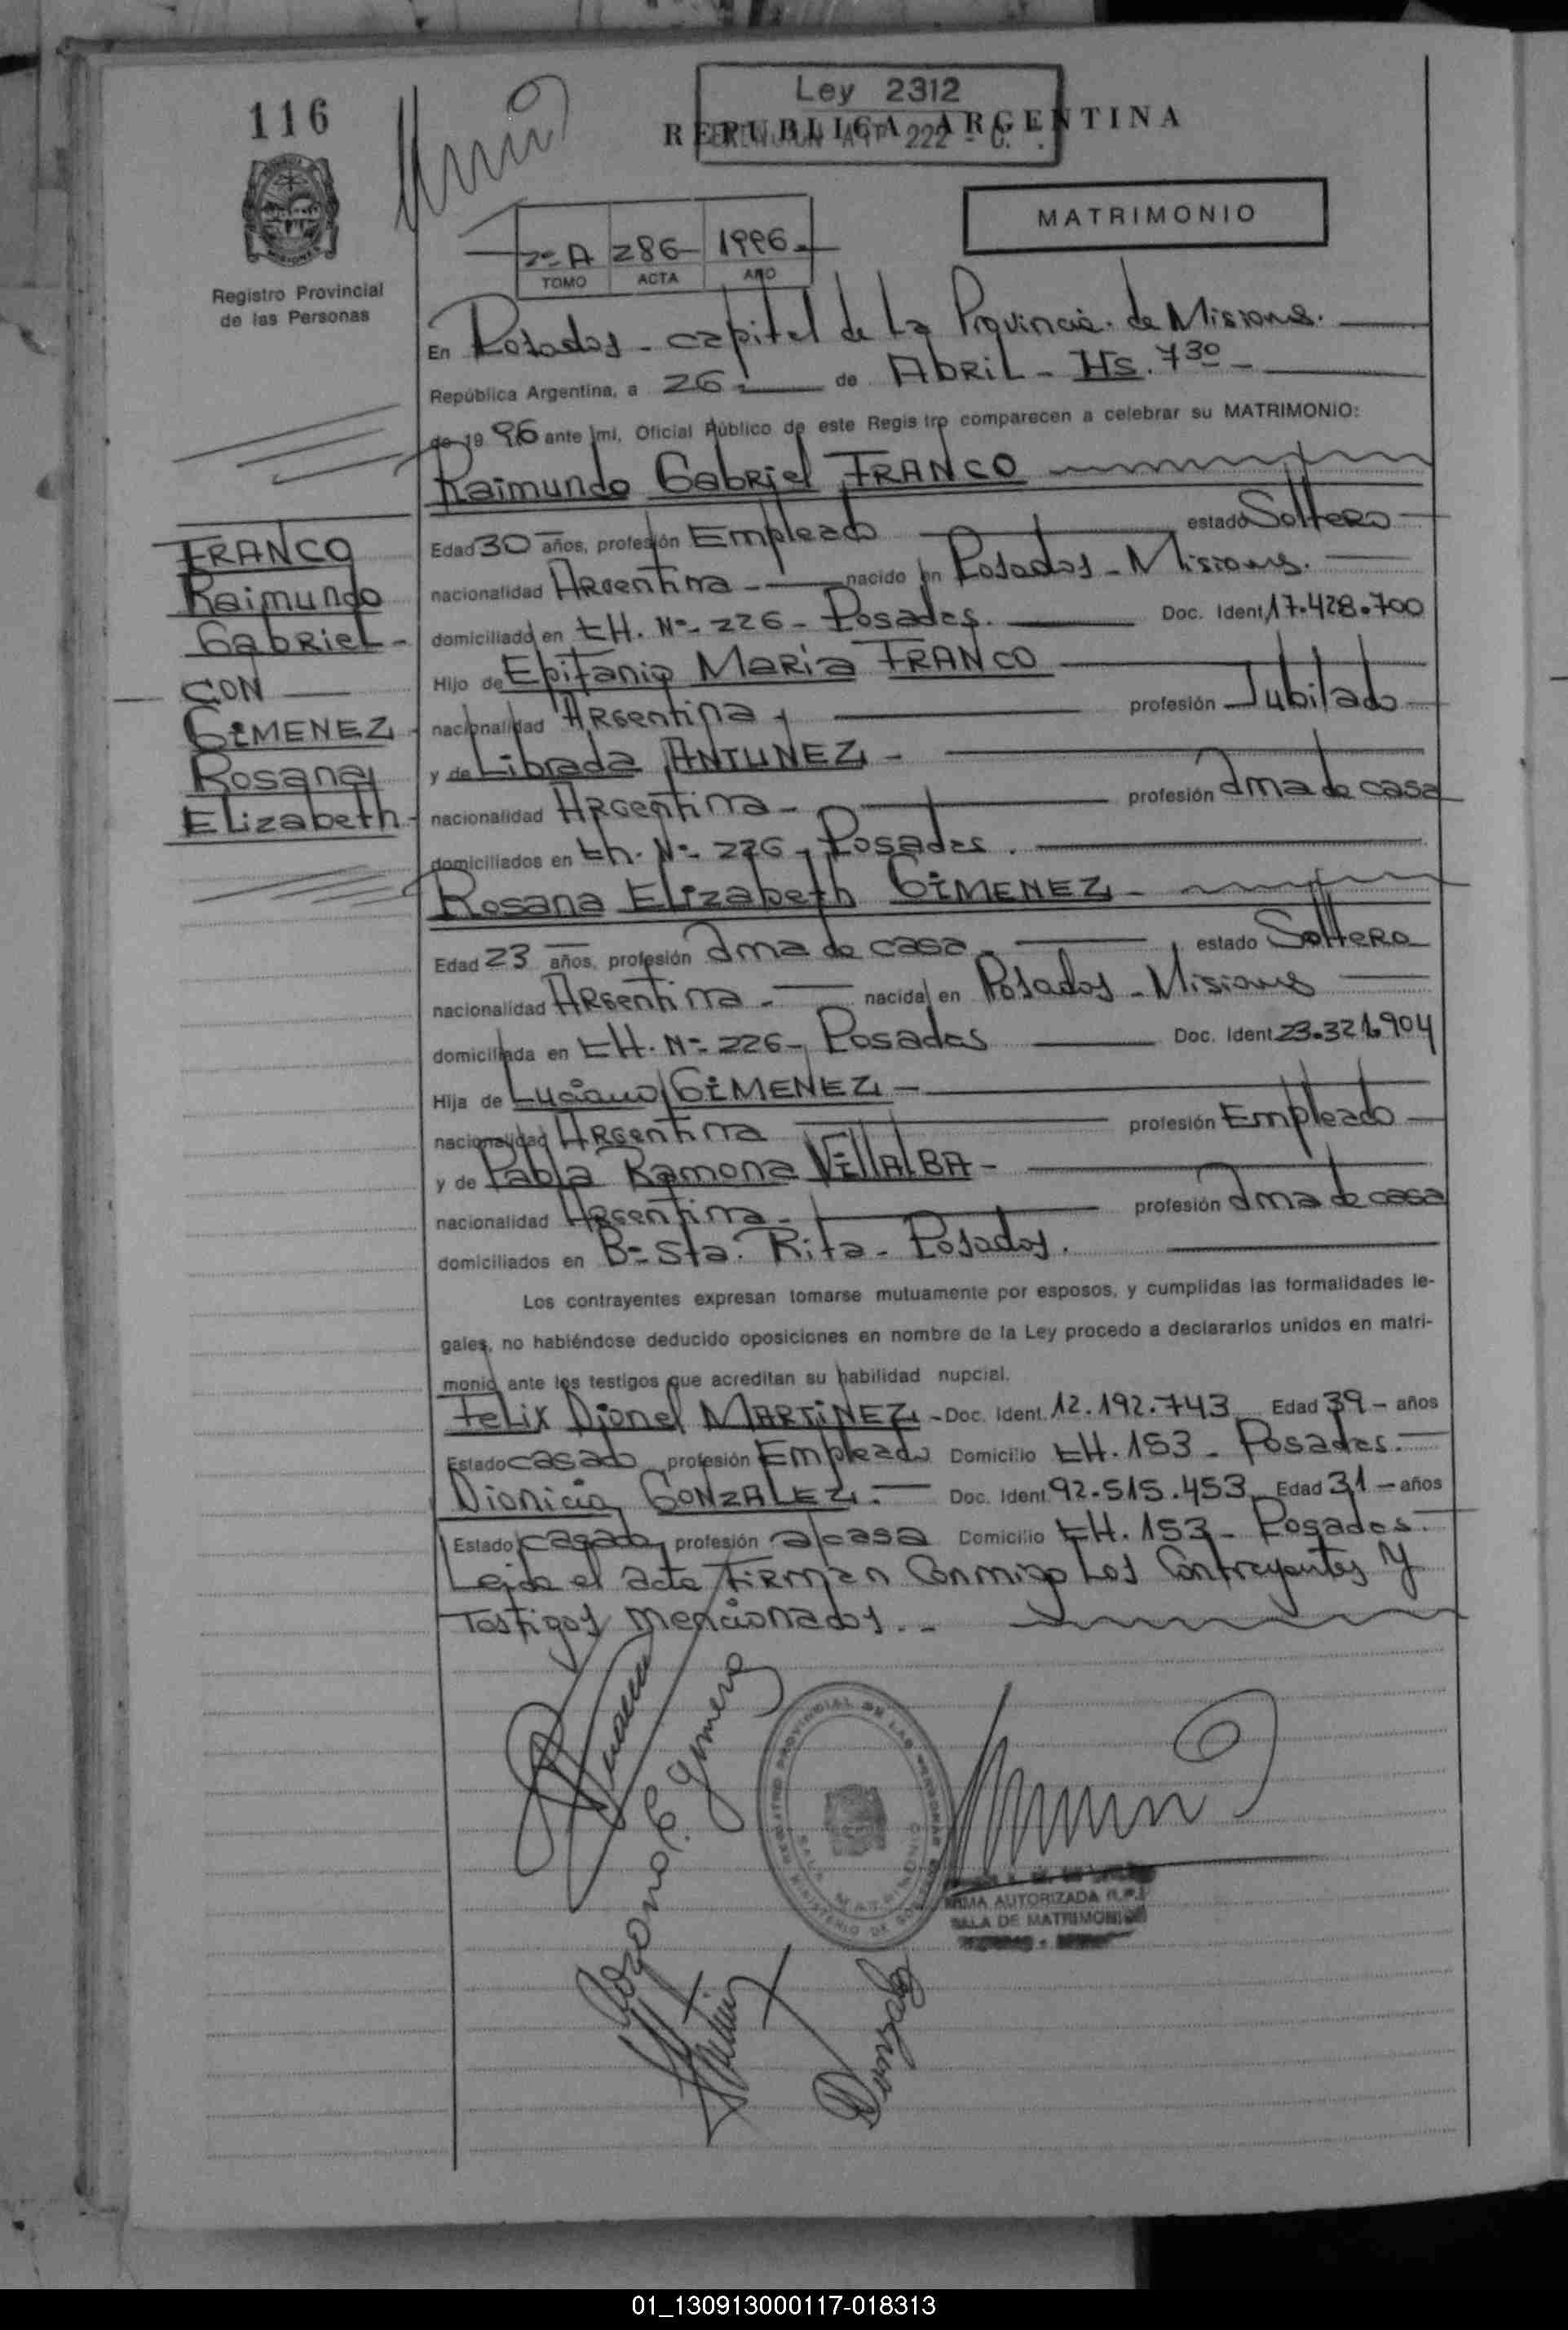 116
Ley 2312
REPUBLICA ARGENTINA
222
MATRIMONIO
2º A 286 1996.
TOMO ACTA AÑO
Registro Provincial
de las Personas
En Posadas - capital de La Provincia de Misiones.
República Argentina, a 26 de Abril - Hs. 7 30 -
de 19 96 ante mí, Oficial Público de este Registro comparecen a celebrar su MATRIMONIO:
Raimundo Gabriel FRANCO
Edad 30 años, profesión Empleado estado Soltero
nacionalidad Argentina - nacido en Posadas - Misiones.
domiciliado en CH. Nº 226 - Posadas. Doc. Ident. 17.428.700
Hijo de Epifanio María FRANCO
nacionalidad Argentina - profesión Jubilado
y de Librada ANTUNEZ -
nacionalidad Argentina - profesión Ama de casa
domiciliados en Ch. Nº 226 - Posadas.
FRANCO
Raimundo
Gabriel -
CON
GIMENEZ
Rosana
Elizabeth -
Rosana Elizabeth GIMENEZ -
Edad 23 años, profesión Ama de casa - estado Soltera
nacionalidad Argentina - nacida en Posadas - Misiones
domiciliada en CH. Nº 226 - Posadas Doc. Ident. 23.321.904
Hija de Luciano GIMENEZ -
nacionalidad Argentina profesión Empleado
y de Pabla Ramona VILLALBA -
nacionalidad Argentina - profesión Ama de casa
domiciliados en Bº Sta. Rita - Posadas.
Los contrayentes expresan tomarse mutuamente por esposos, y cumplidas las formalidades le-
gales, no habiéndose deducido oposiciones en nombre de la Ley procedo a declararlos unidos en matri-
monio ante los testigos que acreditan su habilidad nupcial.
Felix Dionel MARTINEZ - Doc. Ident. 12.192.743 Edad 39 - años
Estado casado profesión Empleado Domicilio CH. 153 - Posadas.
Dionicia GONZALEZ. Doc. Ident. 92.515.453 Edad 31 - años
Estado casada profesión a/casa Domicilio CH. 153 - Posadas.
Leida el acta firman Conmigo Los Contrayentes y
Testigos mencionados. -
Rosana E. Gimenez
REGISTRO PROVINCIAL DE LAS PERSONAS
SALA MATRIMONIO
MINISTERIO DE
FIRMA AUTORIZADA R.P.
SALA DE MATRIMONIO
01_130913000117-018313